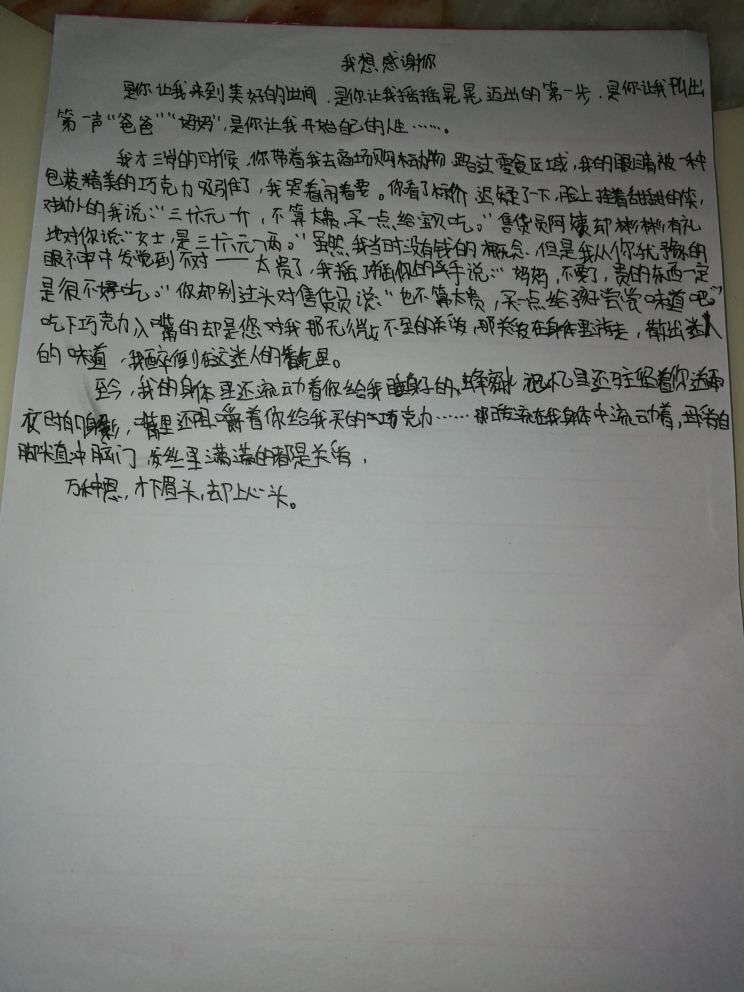 我想感谢你
是你让我来到美好的世间,是你让我摇摇晃晃迈出的第一步,是你让我叫出
第一声“爸爸”“妈妈”,是你让我开始自己的人生……。
我才三岁的时候,你带着我去商场购买动物 路过零食区域,我的眼睛被一种
包装精美的巧克力吸引住了,我哭着闹着要。你看了标价 迟疑了一下,脸上挂着甜甜的笑,
对幼小的我说:“三十六元一斤,不算太贵,买一点给宝贝吃。”售货员阿姨却彬彬有礼
地对你说:“女士,是三十六元一两。”虽然我当时没有钱的概念,但是我从你犹豫的
眼神中发觉到不对——太贵了,我摇了摇你的手说:“妈妈,不要了,贵的东西一定
是很不好吃。”你却别过头对售货员说:“也不算太贵,买一点给孩子尝尝味道吧。”
吃下巧克力入嘴的却是您对我那无微不至的关爱,那关爱在身体里游走,散出迷人
的味道,我醉倒在这迷人的香气里。
至今,我的身体里还流动着你给我的蜂蜜水 记忆里还驻留着你
夜的身影,嘴里还咀嚼着你给我买的巧克力……那暖流在我身体中流动着,自
脚尖直冲脑门 发丝里满满的都是关爱,
万种思,才下眉头,却上心头。